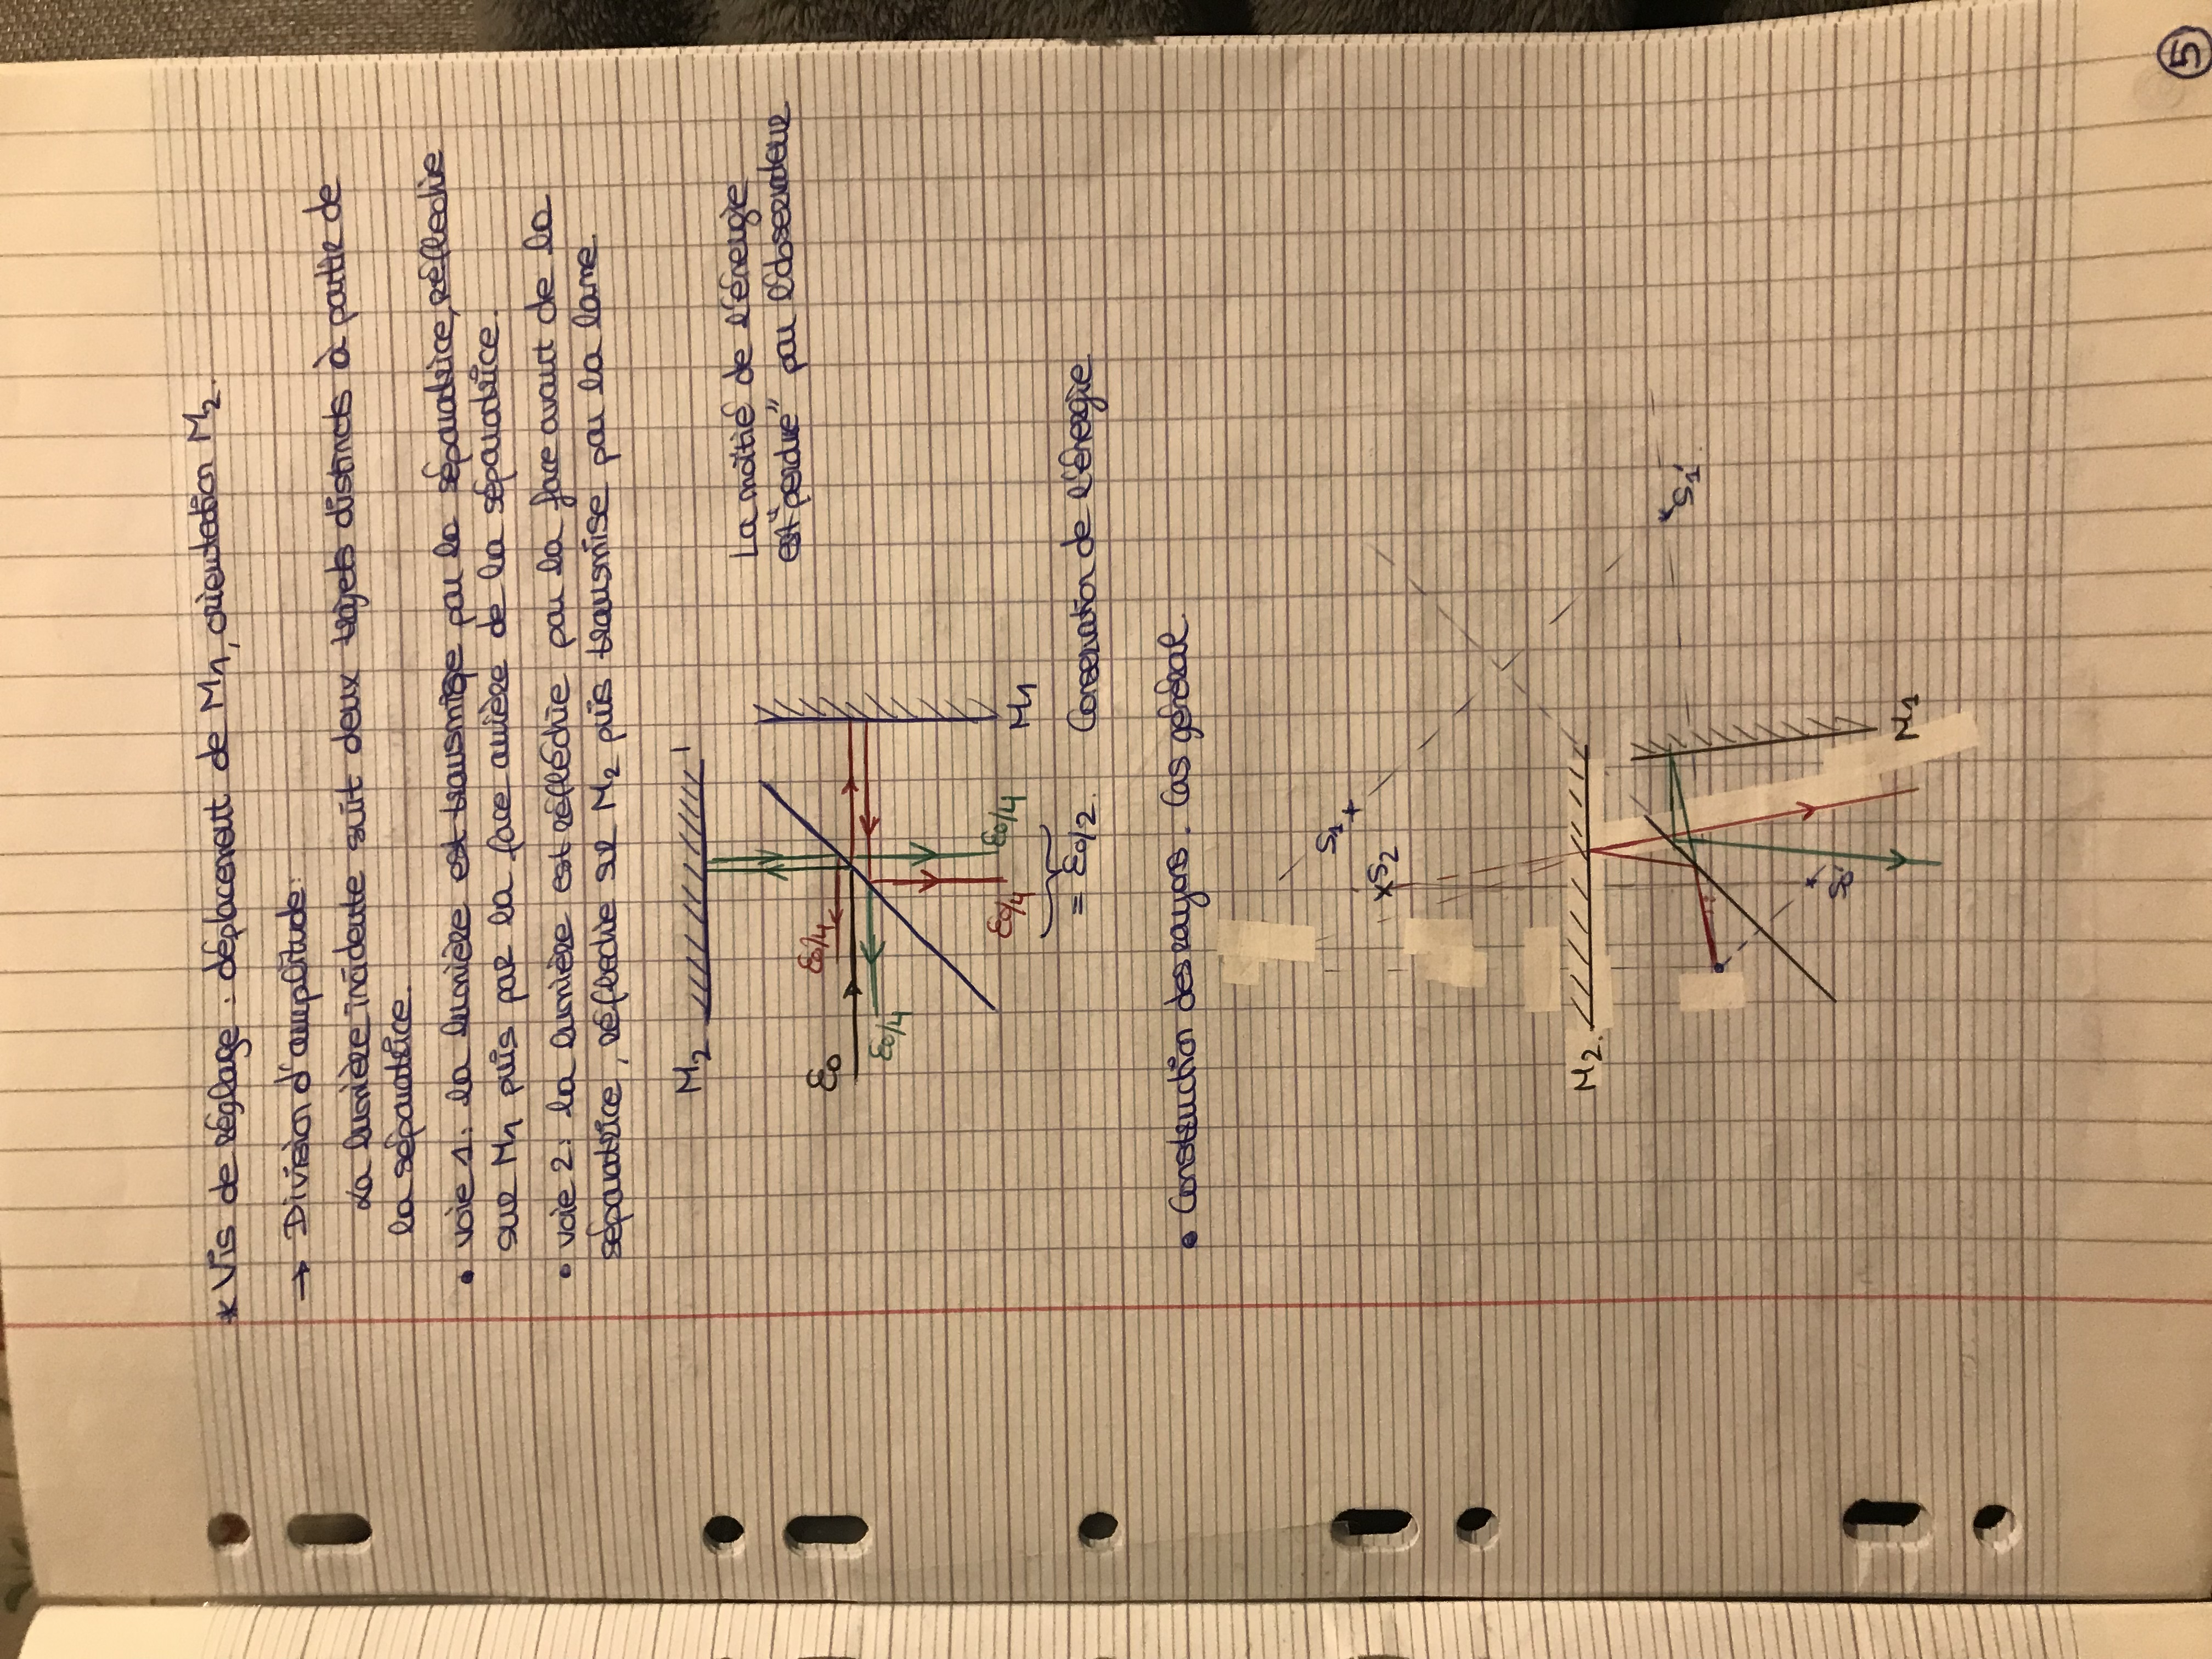 * Vis de réglage : déplacement de M1, orientation M2.
→ Division d'amplitude:
La lumière incidente suit deux trajets distincts à partir de
la séparatrice.
• voie 1: la lumière est transmise par la séparatrice, réflechie
sur M1 puis par la face arrière de la séparatrice.
• voie 2: la lumière est réfléchie par la face avant de la
séparatrice, réflechie sur M2 puis transmise par la lame.
M2
La moitié de l'énergie
est "perdue" par l'observateur
ε0/4
ε0
ε0/4
ε0/4 ε0/4
M1
= ε0/2. Conservation de l'énergie
• Construction des rayons. Cas général.
S1
S2
M2.
S1'
S0'
M1
5